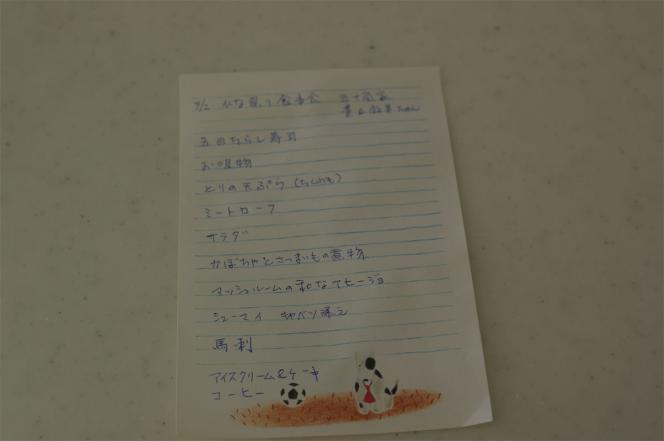 3/2 ひな祭り食事会 五十嵐家
五目ちらし寿司
お吸物
とりの天ぷら (ちくわも)
ミートローフ
サラダ
かぼちゃとさつまいもの煮物
マッシュルームの和なアヒージョ
シューマイ キャベツ添え
馬刺
アイスクリーム&ケーキ
コーヒー